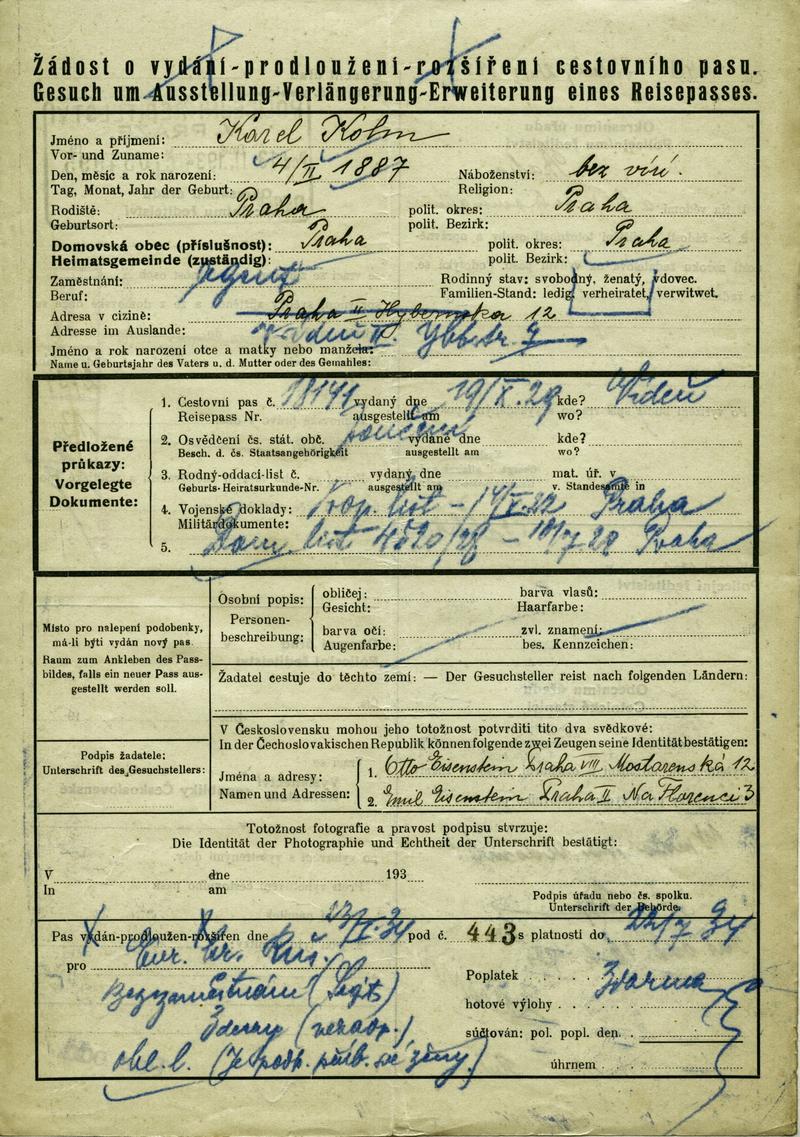 Žádost o vydání-prodloužení-rozšíření cestovního pasu.
Gesuch um Ausstellung-Verlängerung-Erweiterung eines Reisepasses.
Jméno a příjmení: Karel Kohn
Vor- und Zuname:
Den, měsíc a rok narození: 4/II 1887 Náboženství: bez vízí.
Tag, Monat, Jahr der Geburt: Religion:
Rodiště: Praha polit. okres: Praha
Geburtsort: polit. Bezirk:
Domovská obec (příslušnost): Praha polit. okres: Praha
Heimatsgemeinde (zuständig): polit. Bezirk:
Zaměstnání: agent Rodinný stav: svobodný, ženatý, vdovec.
Beruf: Familien-Stand: ledig, verheiratet, verwitwet.
Adresa v cizině: Praha II Hybernska 12
Adresse im Auslande: Vídeň II. Ybbstr. 7
Jméno a rok narození otce a matky nebo manžela:
Name u. Geburtsjahr des Vaters u. d. Mutter oder des Gemahles:
Předložené průkazy:
Vorgelegte Dokumente:
1. Cestovní pas č. 18141 vydaný dne 19/X.29 kde? Vídeň
Reisepass Nr. ausgestellt am wo?
2. Osvědčení čs. stát. obč. vydané dne kde?
Besch. d. čs. Staatsangehörigkeit ausgestellt am wo?
3. Rodný-oddací-list č. vydaný dne mat. úř. v
Geburts-Heiratsurkunde-Nr. ausgestellt am v. Standesamte in
4. Vojenské doklady: list Praha
Militärdokumente:
5. Dom. list 4520/28 Praha
Místo pro nalepení podobenky,
má-li býti vydán nový pas
Raum zum Ankleben des Pass-
bildes, falls ein neuer Pass aus-
gestellt werden soll.
Osobní popis:
Personen-
beschreibung:
obličej: barva vlasů:
Gesicht: Haarfarbe:
barva očí: zvl. znamení:
Augenfarbe: bes. Kennzeichen:
Žadatel cestuje do těchto zemí: — Der Gesuchsteller reist nach folgenden Ländern:
Podpis žadatele:
Unterschrift des Gesuchstellers:
V Československu mohou jeho totožnost potvrditi tito dva svědkové:
In der Čechoslovakischen Republik können folgende zwei Zeugen seine Identität bestätigen:
Jména a adresy: 1. Otto Eisenstein Praha VIII Mostarenská 12
Namen und Adressen: 2. Emil Eisenstein Praha II Na Florenci 3
Totožnost fotografie a pravost podpisu stvrzuje:
Die Identität der Photographie und Echtheit der Unterschrift bestätigt:
V dne 193
In am
Podpis úřadu nebo čs. spolku.
Unterschrift der Behörde.
Pas vydán-prodloužen-rozšířen dne pod č. 443 s platností do
pro
Poplatek Zdarma
hotové výlohy
súčtován: pol. popl. den.
úhrnem